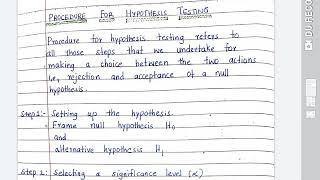 PROCEDURE FOR HYPOTHESIS TESTING
Procedure for hypothesis testing refers to
all those steps that we undertake for
making a choice between the two actions
i.e., rejection and acceptance of a null
hypothesis.
Step 1: Setting up the hypothesis.
Frame null hypothesis H₀
and
alternative hypothesis H₁
Step 2: Selecting a significance level (α)